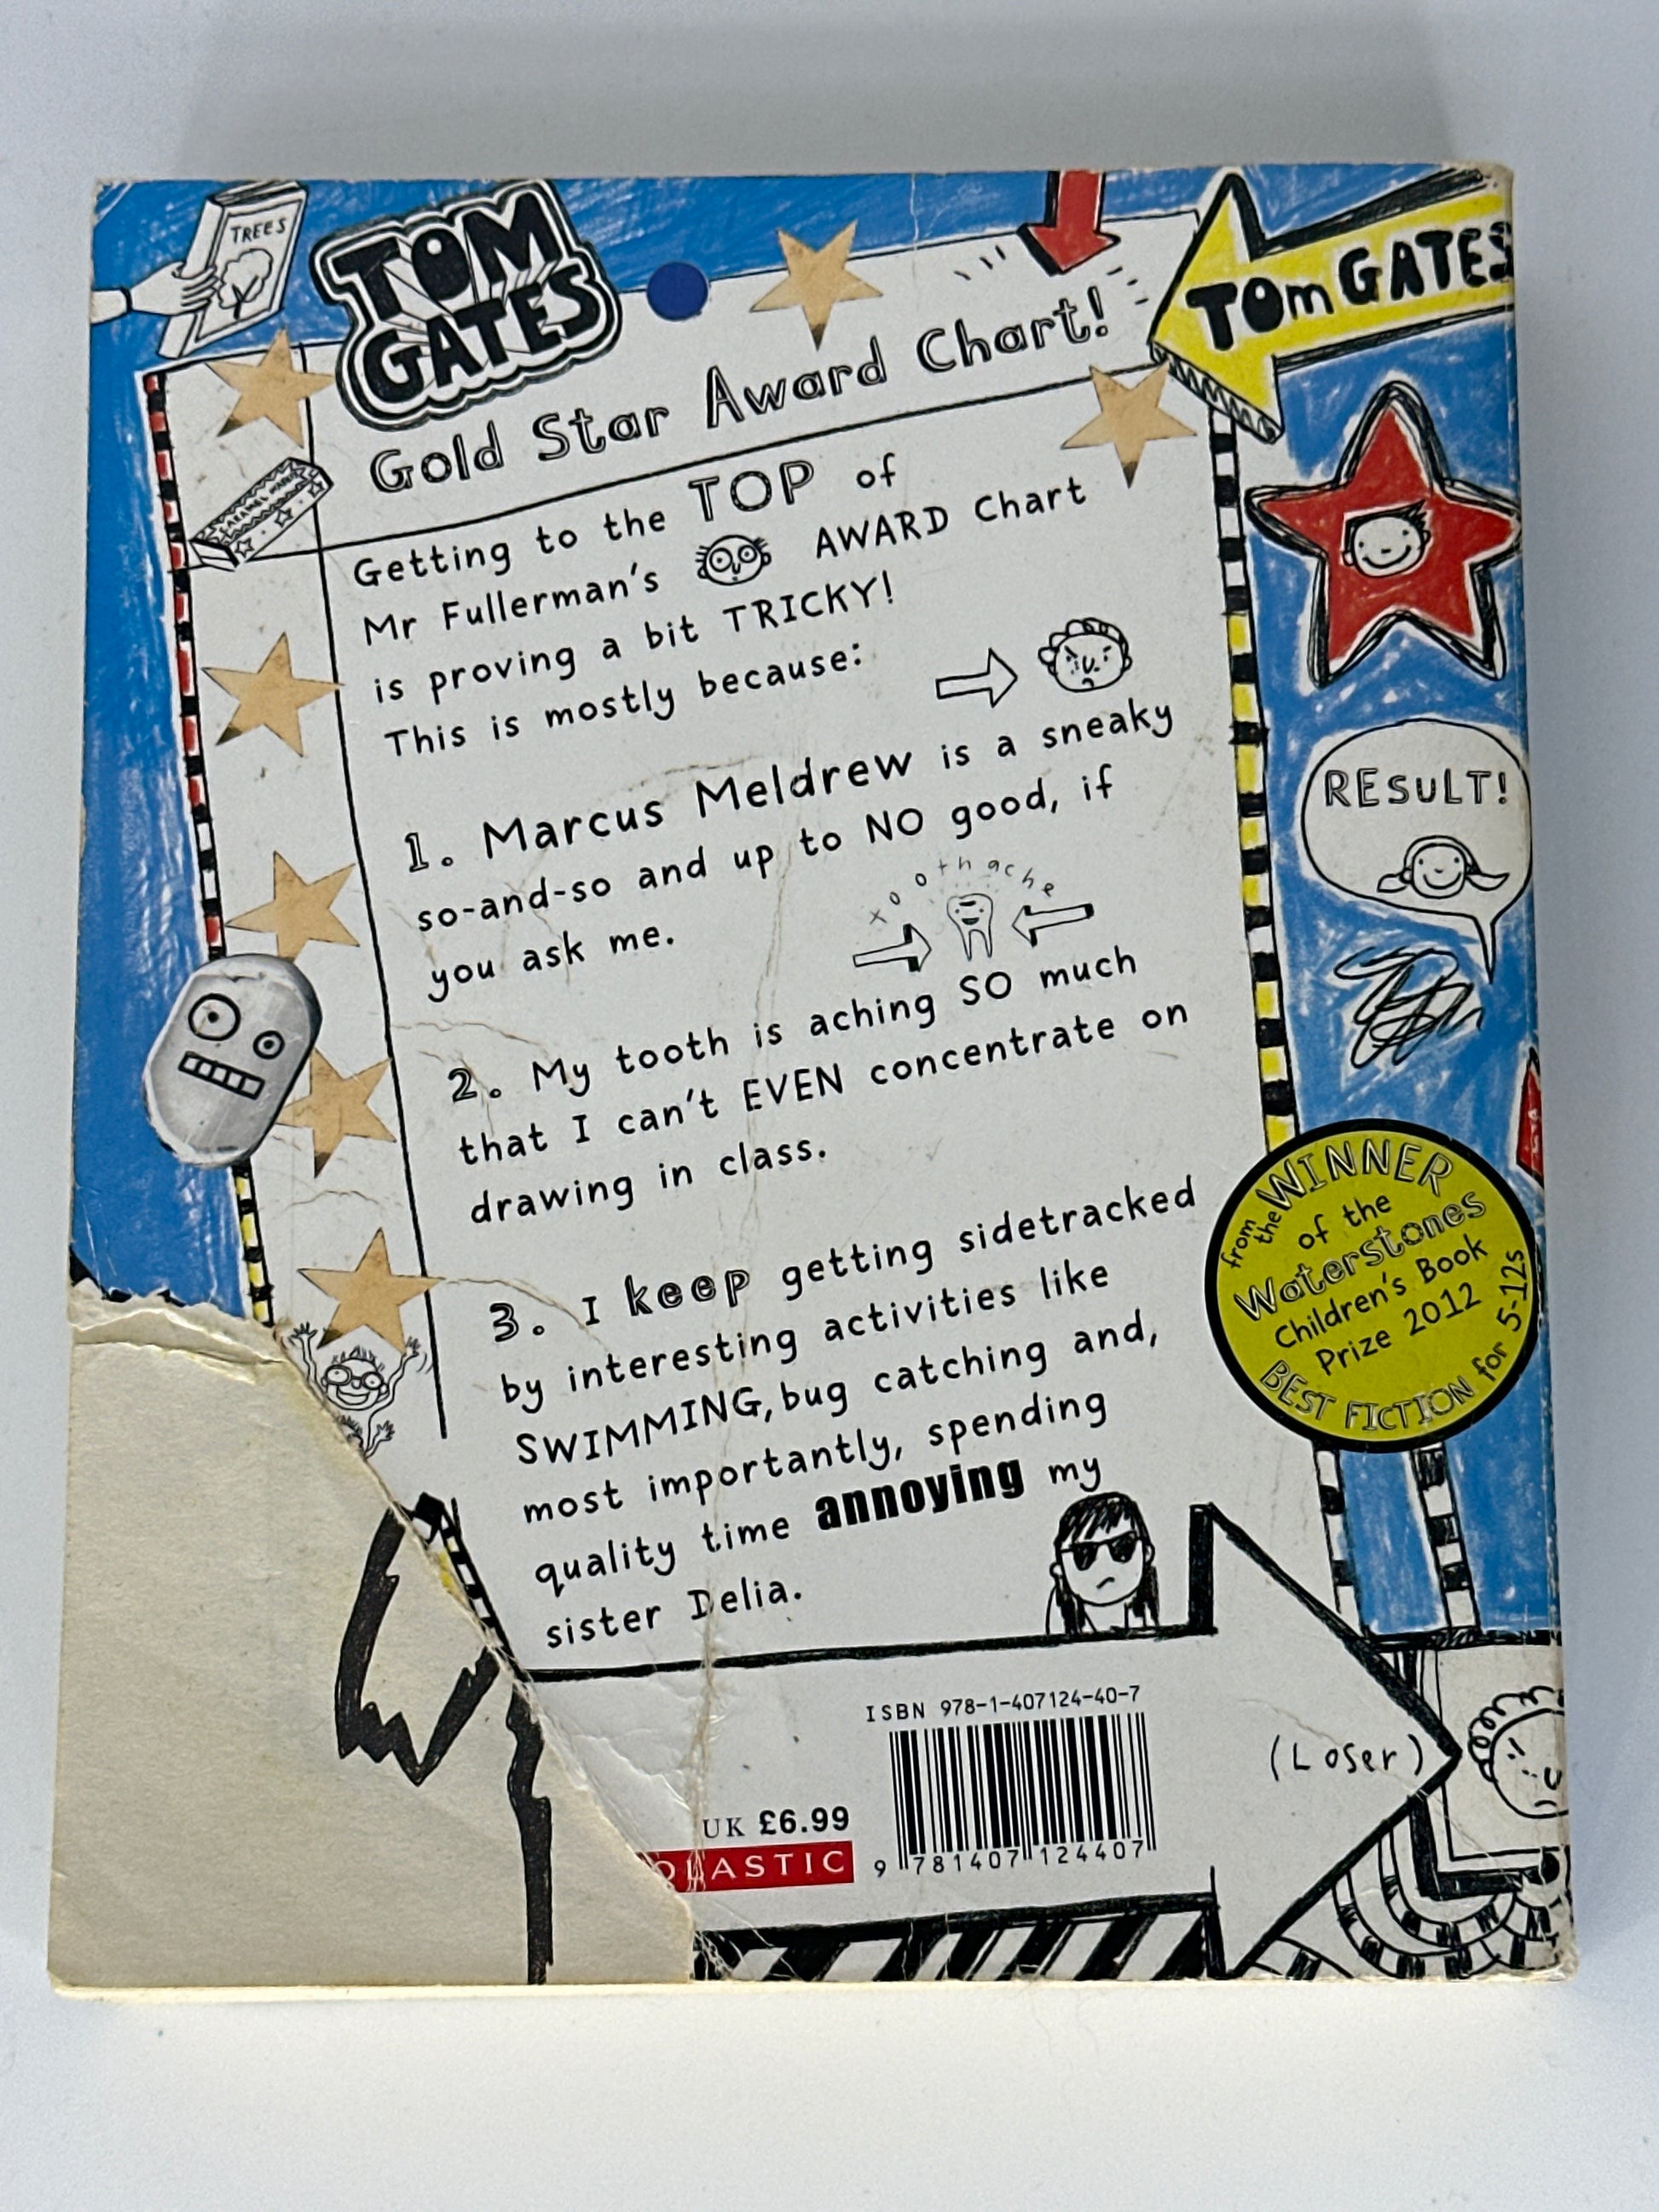 TREES
TOM
GATES
TOm GATES
Gold Star Award Chart!
Getting to the TOP of
Mr Fullerman's AWARD Chart
is proving a bit TRICKY!
This is mostly because:
1. Marcus Meldrew is a sneaky
so-and-so and up to NO good, if
you ask me.
toothache
2. My tooth is aching SO much
that I can't EVEN concentrate on
drawing in class.
3. I keep getting sidetracked
by interesting activities like
SWIMMING, bug catching and,
most importantly, spending
quality time annoying my
sister Delia.
RESuLT!
from
the WINNER
of the
Waterstones
Children's Book
Prize 2012
BEST FICTION for 5-12s
ISBN 978-1-407124-40-7
9 781407 124407
UK £6.99
OLASTIC
(Loser)